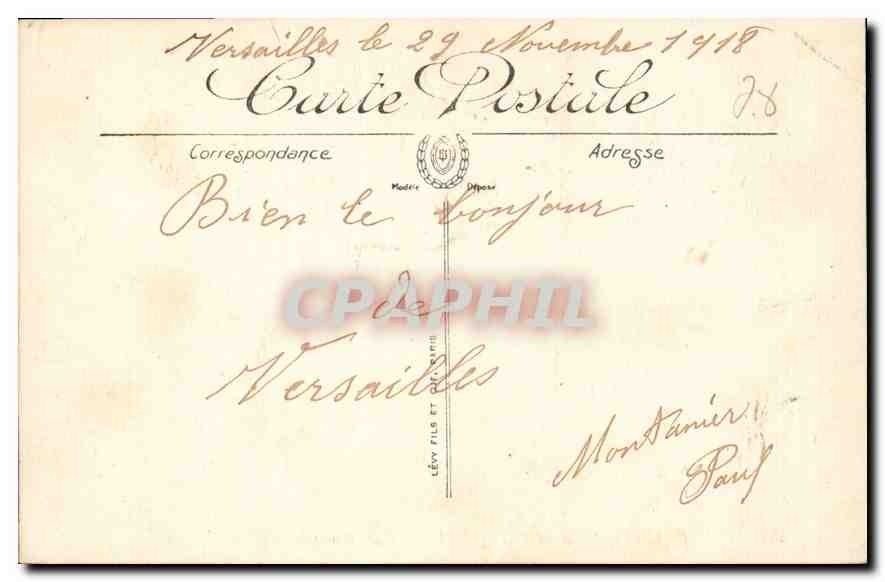 Versailles le 29 Novembre 1918
Carte Postale
78
Correspondance
Adresse
Modèle Déposé
Bien le bonjour
CPAPHIL
de
Versailles
LÉVY FILS ET CIE, PARIS
Montanier
Paul